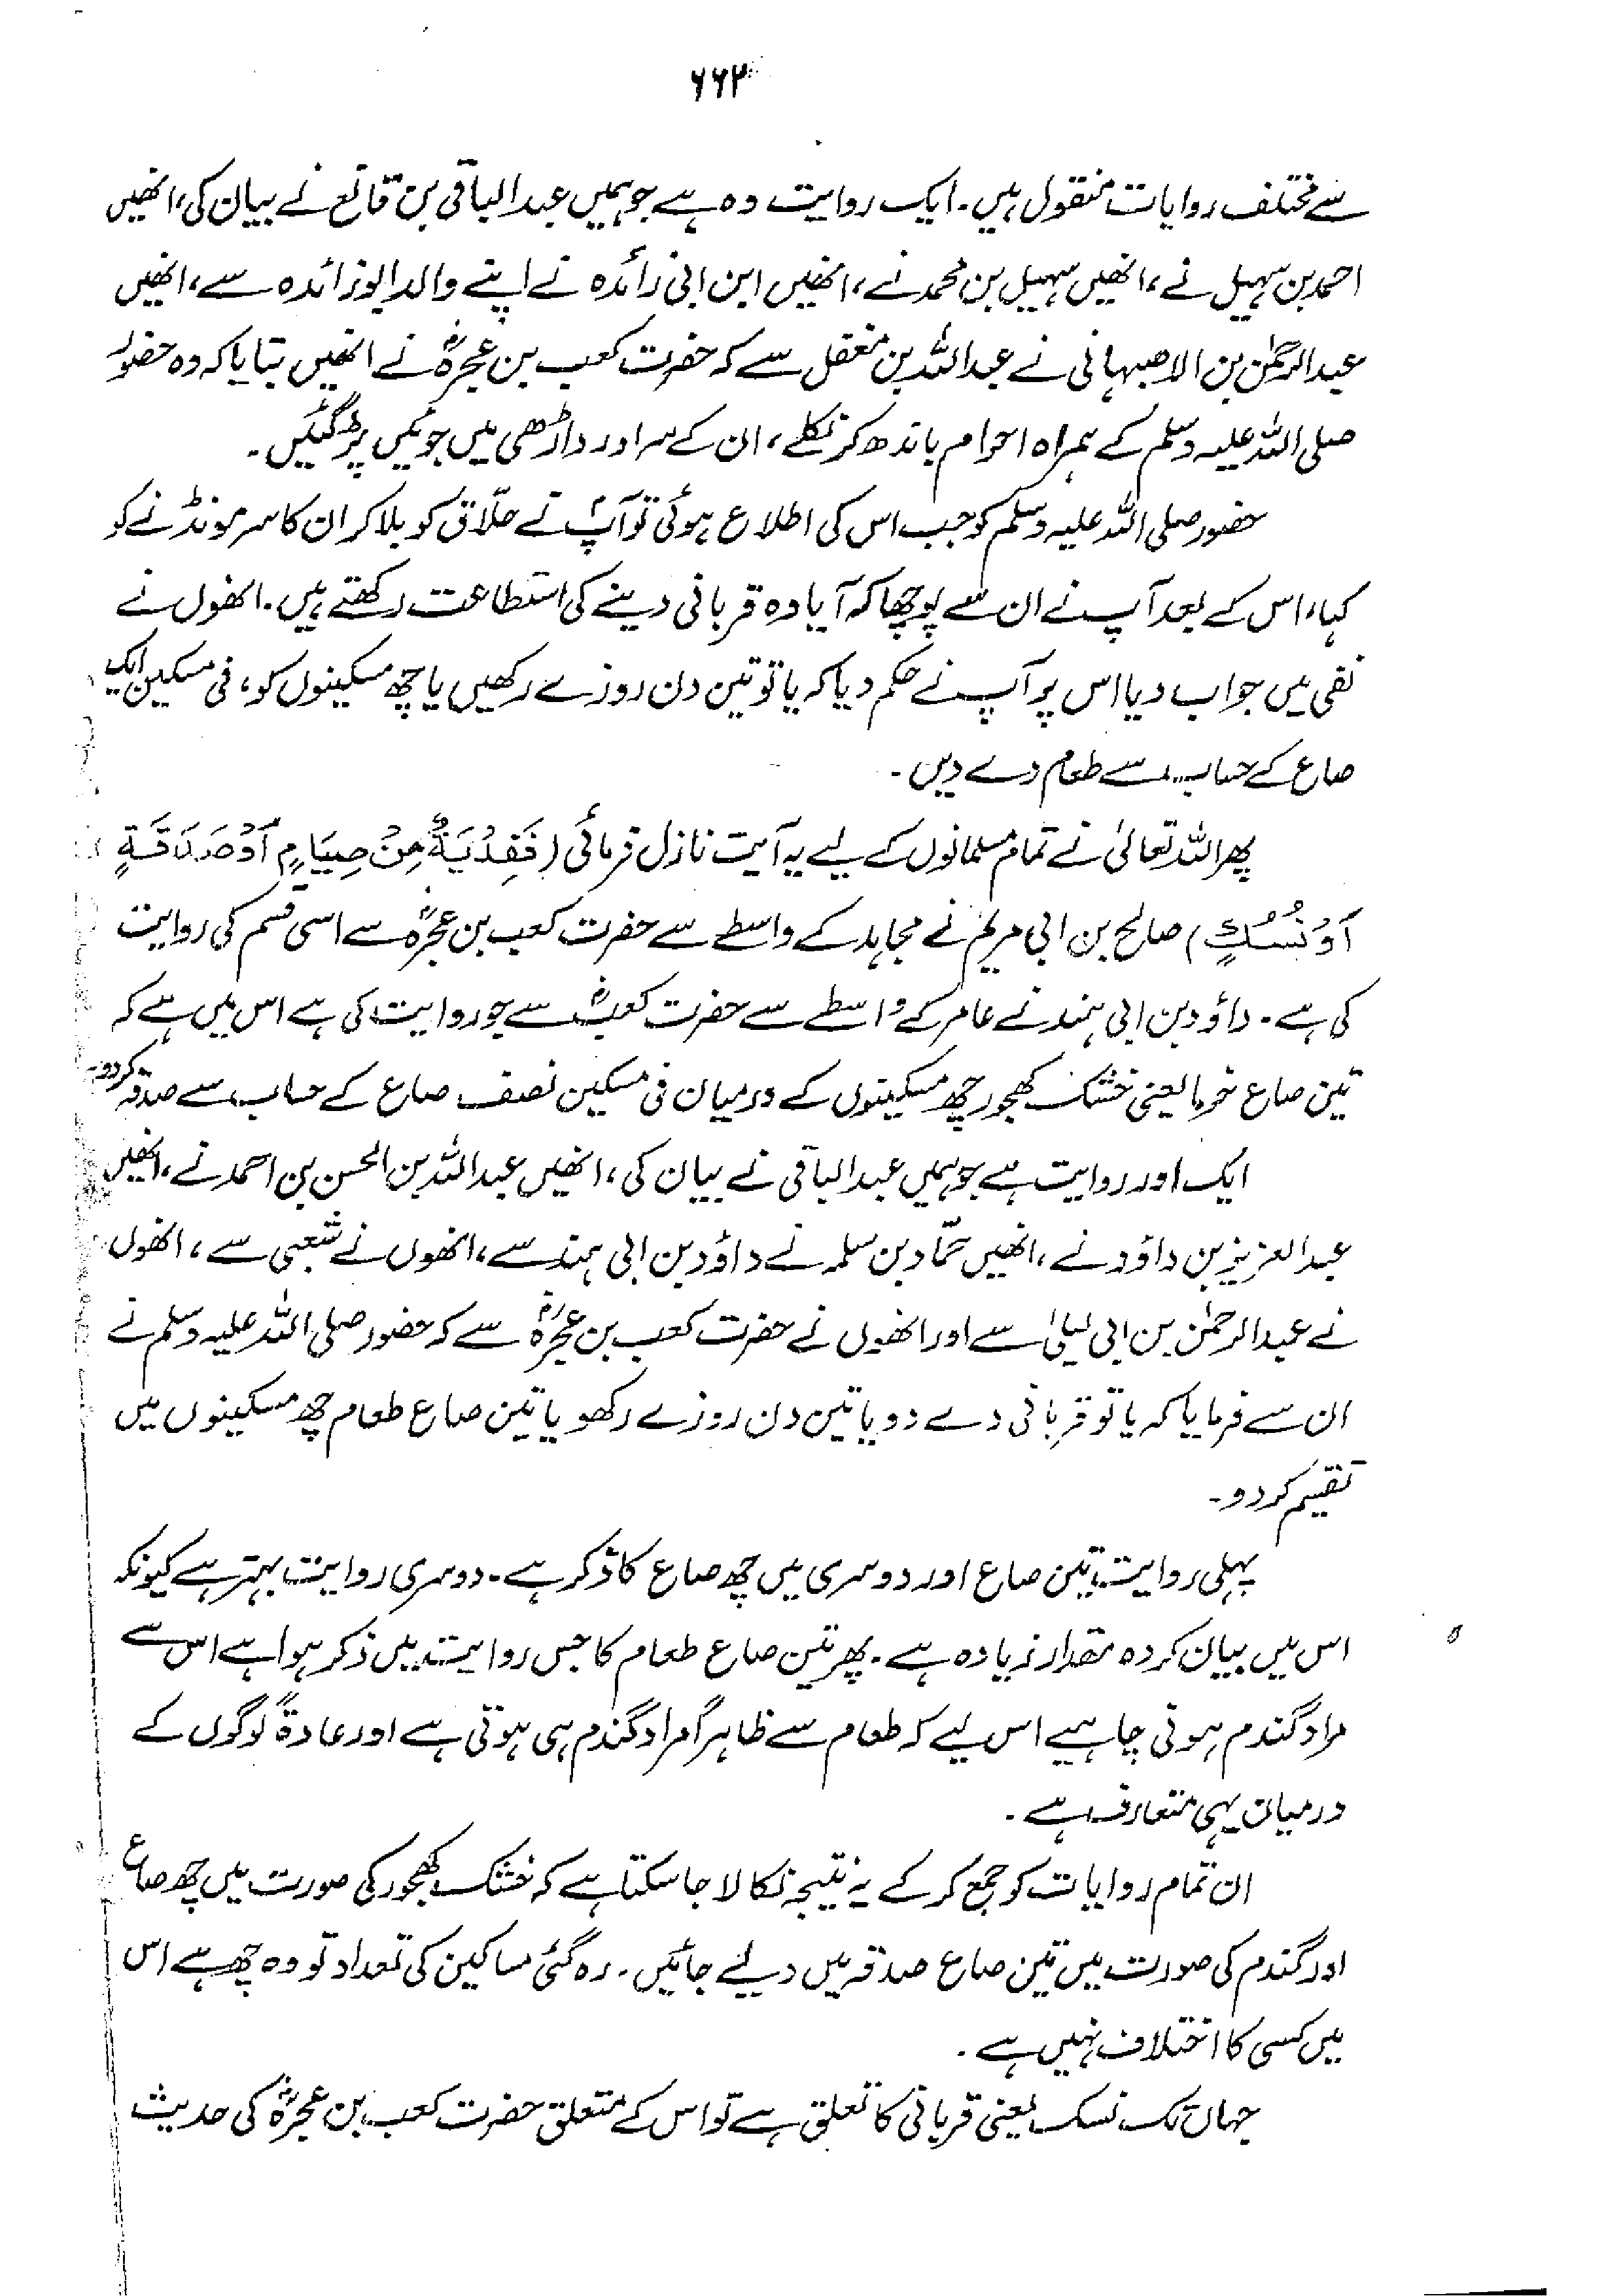 ۶۶۳
سے مختلف روایات منقول ہیں۔ ایک روایت وہ ہے جو ہمیں عبدالباقی بن قانع نے بیان کی، انھیں
احمد بن سہیل نے، انھیں سہیل بن محمد نے، انھیں ابن ابی زائدہ نے اپنے والد ابوزائدہ سے، انھیں
عبدالرحمٰن بن الاصبہانی نے عبداللہ بن معقل سے کہ حضرت کعب بن عجرہؓ نے انھیں بتایا کہ وہ حضور
صلی اللہ علیہ وسلم کے ہمراہ احرام باندھ کر نکلے، ان کے سر اور داڑھی میں جوئیں پڑ گئیں۔
حضور صلی اللہ علیہ وسلم کو جب اس کی اطلاع ہوئی تو آپؐ نے حلّاق کو بلا کر ان کا سر مونڈنے کو
کہا، اس کے بعد آپ نے ان سے پوچھا کہ آیا وہ قربانی دینے کی استطاعت رکھتے ہیں۔ انھوں نے
نفی میں جواب دیا اس پر آپ نے حکم دیا کہ یا تو تین دن روزے رکھیں یا چھ مسکینوں کو، فی مسکین ایک
صاع کے حساب سے طعام دے دیں۔
پھر اللہ تعالیٰ نے تمام مسلمانوں کے لیے یہ آیت نازل فرمائی (فَفِدْيَةٌ مِنْ صِيَامٍ اَوْ صَدَقَةٍ
اَوْ نُسُكٍ) صالح بن ابی مریم نے مجاہد کے واسطے سے حضرت کعب بن عجرہؓ سے اسی قسم کی روایت
کی ہے۔ داؤد بن ابی ہند نے عامر کے واسطے سے حضرت کعبؓ سے جو روایت کی ہے اس میں ہے کہ
تین صاع خرما یعنی خشک کھجور چھ مسکینوں کے درمیان فی مسکین نصف صاع کے حساب سے صدقہ کردو۔
ایک اور روایت ہے جو ہمیں عبدالباقی نے بیان کی، انھیں عبداللہ بن الحسن بن احمد نے، انھیں
عبدالعزیز بن داؤد نے، انھیں حمّاد بن سلمہ نے داؤد بن ابی ہند سے، انھوں نے شعبی سے، انھوں
نے عبدالرحمٰن بن ابی لیلیٰ سے اور انھوں نے حضرت کعب بن عجرہؓ سے کہ حضور صلی اللہ علیہ وسلم نے
ان سے فرمایا کہ یا تو قربانی دے دو یا تین دن روزے رکھو یا تین صاع طعام چھ مسکینوں میں
تقسیم کردو۔
پہلی روایت تین صاع اور دوسری میں چھ صاع کا ذکر ہے۔ دوسری روایت بہتر ہے کیونکہ
اس میں بیان کردہ مقدار زیادہ ہے۔ پھر تین صاع طعام کا جس روایت میں ذکر ہوا ہے اس سے
مراد گندم ہونی چاہیے اس لیے کہ طعام سے ظاہراً مراد گندم ہی ہوتی ہے اور عادۃً لوگوں کے
درمیان یہی متعارف ہے۔
ان تمام روایات کو جمع کر کے یہ نتیجہ نکالا جا سکتا ہے کہ خشک کھجور کی صورت میں چھ صاع
اور گندم کی صورت میں تین صاع صدقہ میں دیئے جائیں۔ رہ گئی مساکین کی تعداد تو وہ چھ ہے اس
میں کسی کا اختلاف نہیں ہے۔
جہاں تک نسک یعنی قربانی کا تعلق ہے تو اس کے متعلق حضرت کعب بن عجرہؓ کی حدیث